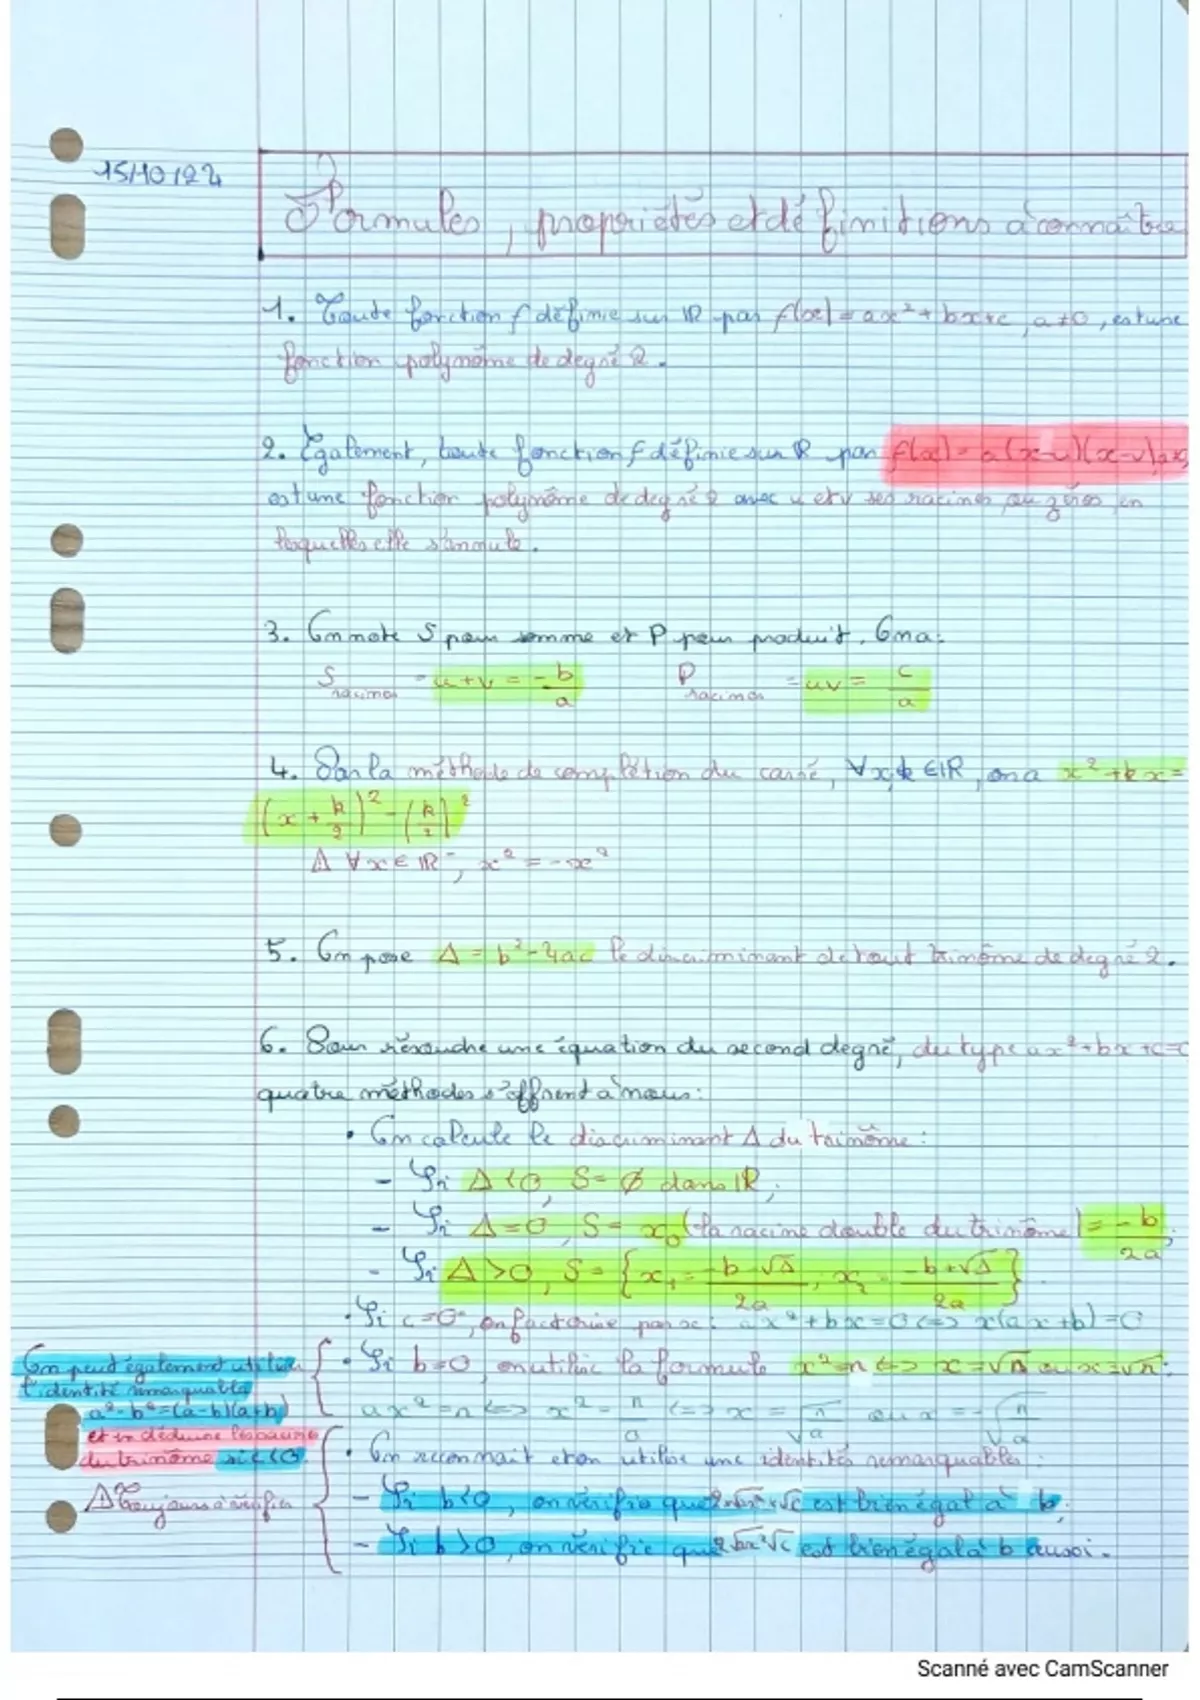 15/10/22
Formules, propriétés et définitions à connaître
1. Toute fonction f définie sur ℝ par f(x) = ax² + bx + c, a ≠ 0, est une
fonction polynôme de degré 2.
2. Egalement, toute fonction f définie sur ℝ par f(x) = a(x-u)(x-v),
est une fonction polynôme de degré 2 avec u et v ses racines ou zéros en
lesquelles elle s'annule.
3. On note S pour somme et P pour produit. On a:
S racines = u+v = -b/a P racines = uv = c/a
4. Par la méthode de complétion du carré, ∀x, k ∈ ℝ, on a x² + kx =
(x + k/2)² - (k/2)²
⚠ ∀x ∈ ℝ⁻, x² = -x²
5. On pose Δ = b² - 4ac le discriminant de tout trinôme de degré 2.
6. Pour résoudre une équation du second degré, du type ax² + bx + c = 0
quatre méthodes s'offrent à nous:
• On calcule le discriminant Δ du trinôme:
- Si Δ < 0, S = ∅ dans ℝ;
- Si Δ = 0, S = x₀ (la racine double du trinôme) = -b/2a;
- Si Δ > 0, S = {x₁ = -b-√Δ/2a, x₂ = -b+√Δ/2a}.
• Si c = 0, on factorise par x: ax² + bx = 0 <=> x(ax + b) = 0
• Si b = 0 on utilise la formule x² = n <=> x = √n ou x = √n:
ax² = n <=> x² = n/a <=> x = √n/a ou x = -√n/a
On peut également utiliser
l'identité remarquable
a² - b² = (a-b)(a+b)
et en déduire les racines
du trinôme si c < 0.
• On reconnait et on utilise une identités remarquables:
⚠ Toujours à vérifier
- Si b < 0, on vérifie que est bien égal à b;
- Si b > 0, on vérifie que est bien égal à b aussi.
Scanné avec CamScanner